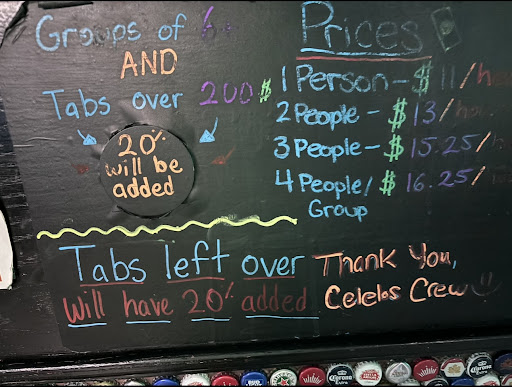 Groups of 6
AND
Tabs over 200$
20%
will be
added
Prices
1 Person - $11/hour
2 People - $13/hour
3 People - $15.25/h
4 People/ $16.25/
Group
Tabs left over
Will have 20% added
Thank You,
Celebs Crew
Corona
Extra
Corona
Corona